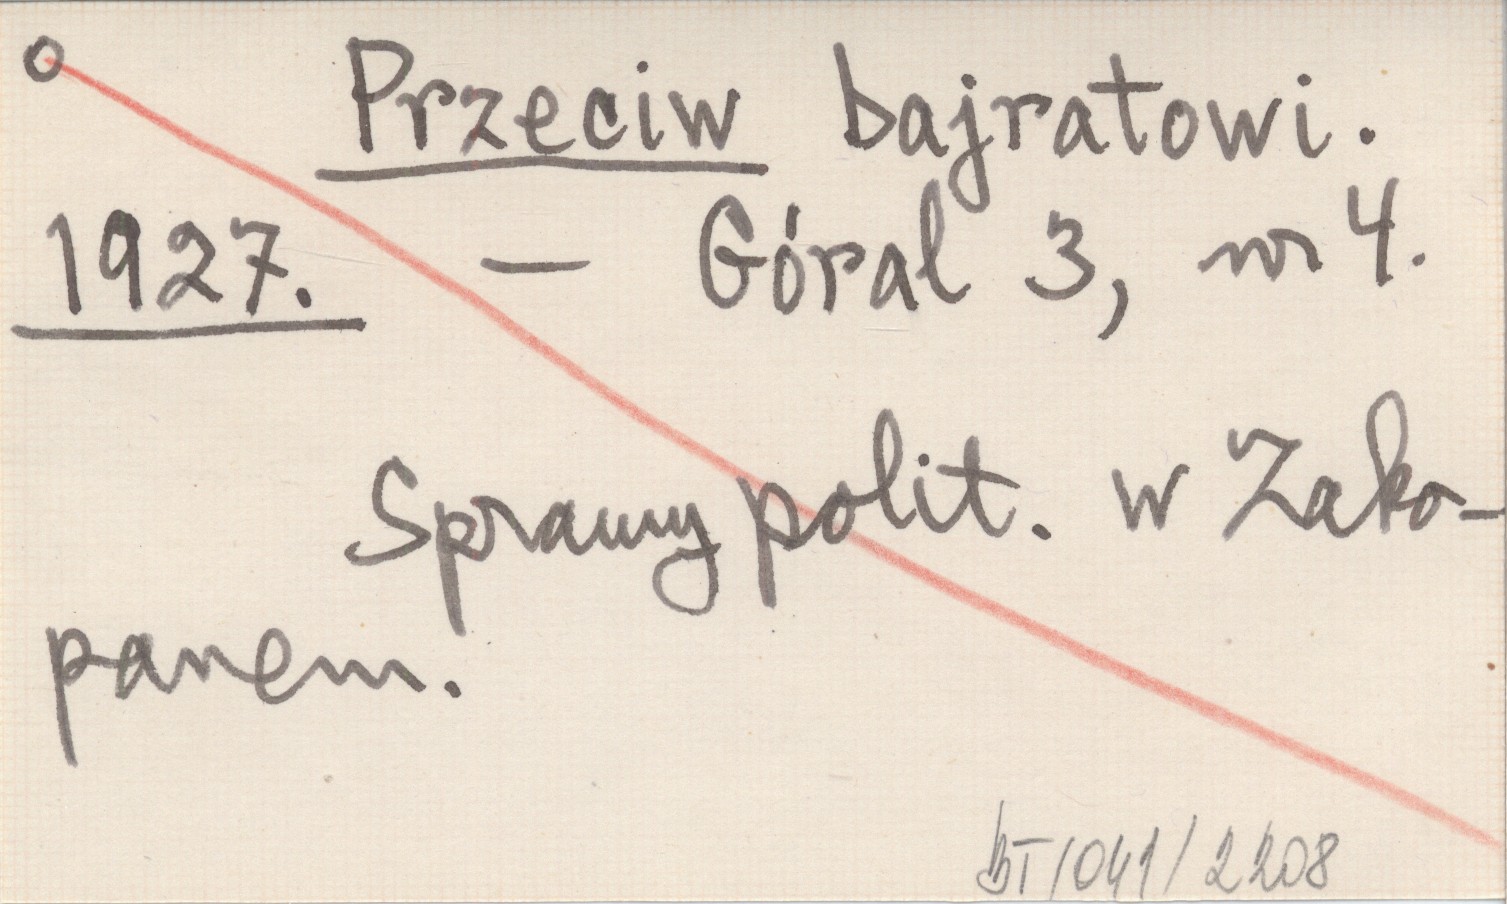 o Przeciw bajratowi.
1927. — Góral 3, nr 4.
Sprawy polit. w Zako-
panem.
BT/041/2208